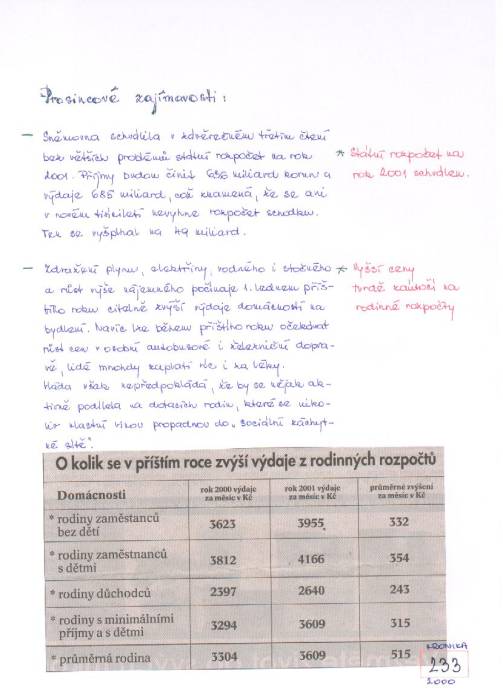 Prosincové zajímavosti:
– Sněmovna schválila v závěrečném třetím čtení
bez větších problémů státní rozpočet na rok
2001. Příjmy budou činit 636 miliard korun a
výdaje 685 miliard, což znamená, že se ani
v novém tisíciletí nevyhne rozpočet schodku.
Ten se vyšplhal na 49 miliard.
* Státní rozpočet na
rok 2001 schválen.
– Zdražení plynu, elektřiny, vodného i stočného
a růst výše nájemného počínaje 1. lednem příš-
tího roku citelně zvýší výdaje domácností na
bydlení. Navíc lze během příštího roku očekávat
růst cen v osobní autobusové i železniční dopra-
vě, lidé mnohdy zaplatí více i za léky.
Vláda však nepředpokládá, že by se nějak ak-
tivně podílela na dotacích rodin, které se niko-
liv vlastní vinou propadnou do „sociální záchyt-
né sítě".
* Vyšší ceny
tvrdě zaútočí na
rodinné rozpočty
O kolik se v příštím roce zvýší výdaje z rodinných rozpočtů
Domácnosti rok 2000 výdaje za měsíc v Kč rok 2001 výdaje za měsíc v Kč průměrné zvýšení za měsíc v Kč
* rodiny zaměstanců
bez dětí 3623 3955 332
* rodiny zaměstnanců
s dětmi 3812 4166 354
* rodiny důchodců 2397 2640 243
* rodiny s minimálními
příjmy a s dětmi 3294 3609 315
* průměrná rodina 3304 3609 515
KRONIKA
233
2000